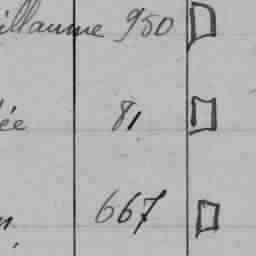 illaume 950
ée 81
667